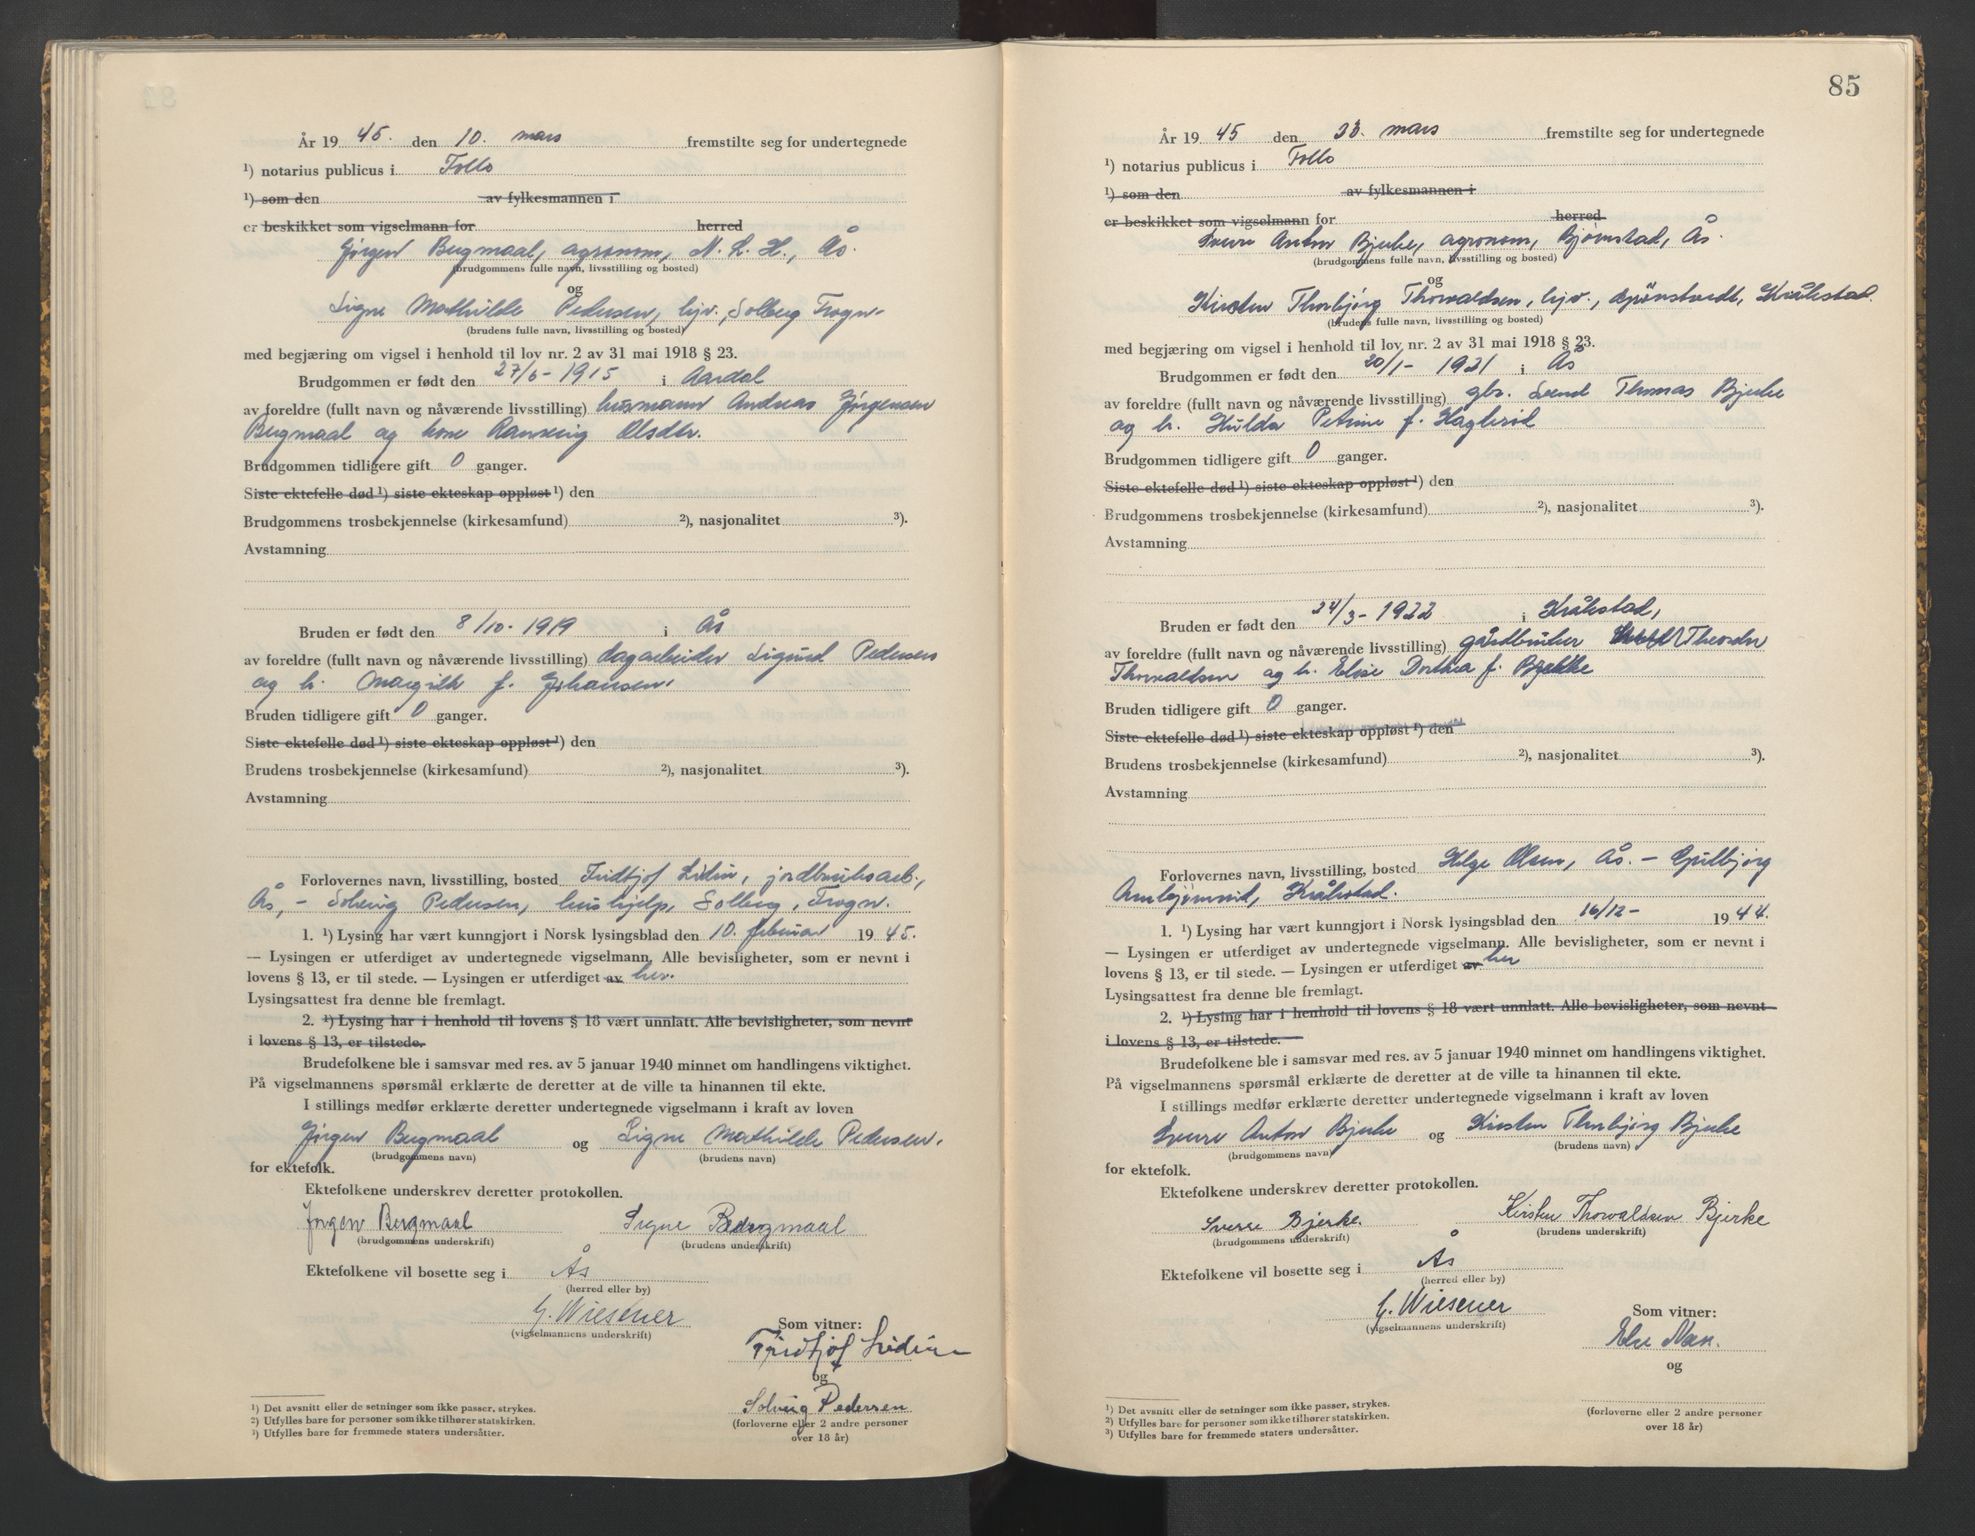 År 19 45. den 10. mars fremstilte seg for undertegnede
¹) notarius publicus i Follo
¹) som den av fylkesmannen i
er beskikket som vigselmann for herred
Jørgen Bergmaal, agronom, N. L. H., Ås.
(brudgommens fulle navn, livsstilling og bosted)
og
Signe Mathilde Pedersen, hjv., Solberg Frogn.
(brudens fulle navn, livsstilling og bosted)
med begjæring om vigsel i henhold til lov nr. 2 av 31 mai 1918 § 23.
Brudgommen er født den 27/6 - 1915 i Aardal
av foreldre (fullt navn og nåværende livsstilling) husmann Andreas Jørgensen
Bergmaal og kone Ranveig Olsdtr.
Brudgommen tidligere gift 0 ganger.
Siste ektefelle død ¹) siste ekteskap oppløst ¹) den
Brudgommens trosbekjennelse (kirkesamfund) ²), nasjonalitet ³).
Avstamning
Bruden er født den 8/10 - 1919 i Ås
av foreldre (fullt navn og nåværende livsstilling) dagarbeider Sigurd Pedersen
og h. Margith f. Johansen.
Bruden tidligere gift 0 ganger.
Siste ektefelle død ¹) siste ekteskap oppløst ¹) den
Brudens trosbekjennelse (kirkesamfund) ²), nasjonalitet ³).
Avstamning
Forlovernes navn, livsstilling, bosted Fridtjof Lidin, jordbruksarb.,
Ås, - Solveig Pedersen, hushjelp, Solberg, Frogn.
1. ¹) Lysing har vært kunngjort i Norsk lysingsblad den 10. februar 19 45.
— Lysingen er utferdiget av undertegnede vigselmann. Alle bevisligheter, som er nevnt i
lovens § 13, er til stede. — Lysingen er utferdiget av her.
Lysingsattest fra denne ble fremlagt.
2. ¹) Lysing har i henhold til lovens § 18 vært unnlatt. Alle bevisligheter, som nevnt
i lovens § 13, er tilstede.
Brudefolkene ble i samsvar med res. av 5 januar 1940 minnet om handlingens viktighet.
På vigselmannens spørsmål erklærte de deretter at de ville ta hinannen til ekte.
I stillings medfør erklærte deretter undertegnede vigselmann i kraft av loven
Jørgen Bergmaal og Signe Mathilde Pedersen.
(brudgommens navn) (brudens navn)
for ektefolk.
Ektefolkene underskrev deretter protokollen.
Jørgen Bergmaal Signe Bergmaal
(brudgommens underskrift) (brudens underskrift)
Ektefolkene vil bosette seg i Ås
(herred eller by)
G. Wiesener
(vigselmannens underskrift)
Som vitner:
Fridtjof Lidin
og
Solveig Pedersen
(forloverne eller 2 andre personer
over 18 år)
¹) Det avsnitt eller de setninger som ikke passer, strykes.
²) Utfylles bare for personer som ikke tilhører statskirken.
³) Utfylles bare for fremmede staters undersåtter.
85
År 19 45 den 23. mars fremstilte seg for undertegnede
¹) notarius publicus i Follo
¹) som den av fylkesmannen i
er beskikket som vigselmann for herred
Sverre Anton Bjerke, agronom, Bjørnstad, Ås.
(brudgommens fulle navn, livsstilling og bosted)
og
Kirsten Thorbjørg Thorvaldsen, hjv., Grønstvedt, Kråkstad.
(brudens fulle navn, livsstilling og bosted)
med begjæring om vigsel i henhold til lov nr. 2 av 31 mai 1918 § 23.
Brudgommen er født den 20/1 - 1921 i Ås
av foreldre (fullt navn og nåværende livsstilling) gbr. Svend Thomas Bjerke
og h. Hulda Petrine f. Haglerød
Brudgommen tidligere gift 0 ganger.
Siste ektefelle død ¹) siste ekteskap oppløst ¹) den
Brudgommens trosbekjennelse (kirkesamfund) ²), nasjonalitet ³).
Avstamning
Bruden er født den 24/3 - 1922 i Kråkstad,
av foreldre (fullt navn og nåværende livsstilling) gårdbruker Theodor
Thorvaldsen og h. Elise Dorthea f. Bjerke
Bruden tidligere gift 0 ganger.
Siste ektefelle død ¹) siste ekteskap oppløst ¹) den
Brudens trosbekjennelse (kirkesamfund) ²), nasjonalitet ³).
Avstamning
Forlovernes navn, livsstilling, bosted Helge Olsen, Ås. - Gulbjørg
Kråkstad.
1. ¹) Lysing har vært kunngjort i Norsk lysingsblad den 16/12 - 19 44.
— Lysingen er utferdiget av undertegnede vigselmann. Alle bevisligheter, som er nevnt i
lovens § 13, er til stede. — Lysingen er utferdiget av her
Lysingsattest fra denne ble fremlagt.
2. ¹) Lysing har i henhold til lovens § 18 vært unnlatt. Alle bevisligheter, som nevnt
i lovens § 13, er tilstede.
Brudefolkene ble i samsvar med res. av 5 januar 1940 minnet om handlingens viktighet.
På vigselmannens spørsmål erklærte de deretter at de ville ta hinannen til ekte.
I stillings medfør erklærte deretter undertegnede vigselmann i kraft av loven
Sverre Anton Bjerke og Kirsten Thorbjørg Bjerke
(brudgommens navn) (brudens navn)
for ektefolk.
Ektefolkene underskrev deretter protokollen.
Sverre Bjerke. Kirsten Thorvaldsen Bjerke
(brudgommens underskrift) (brudens underskrift)
Ektefolkene vil bosette seg i Ås
(herred eller by)
G. Wiesener
(vigselmannens underskrift)
Som vitner:
Else Næss.
og
(forloverne eller 2 andre personer
over 18 år)
¹) Det avsnitt eller de setninger som ikke passer, strykes.
²) Utfylles bare for personer som ikke tilhører statskirken.
³) Utfylles bare for fremmede staters undersåtter.